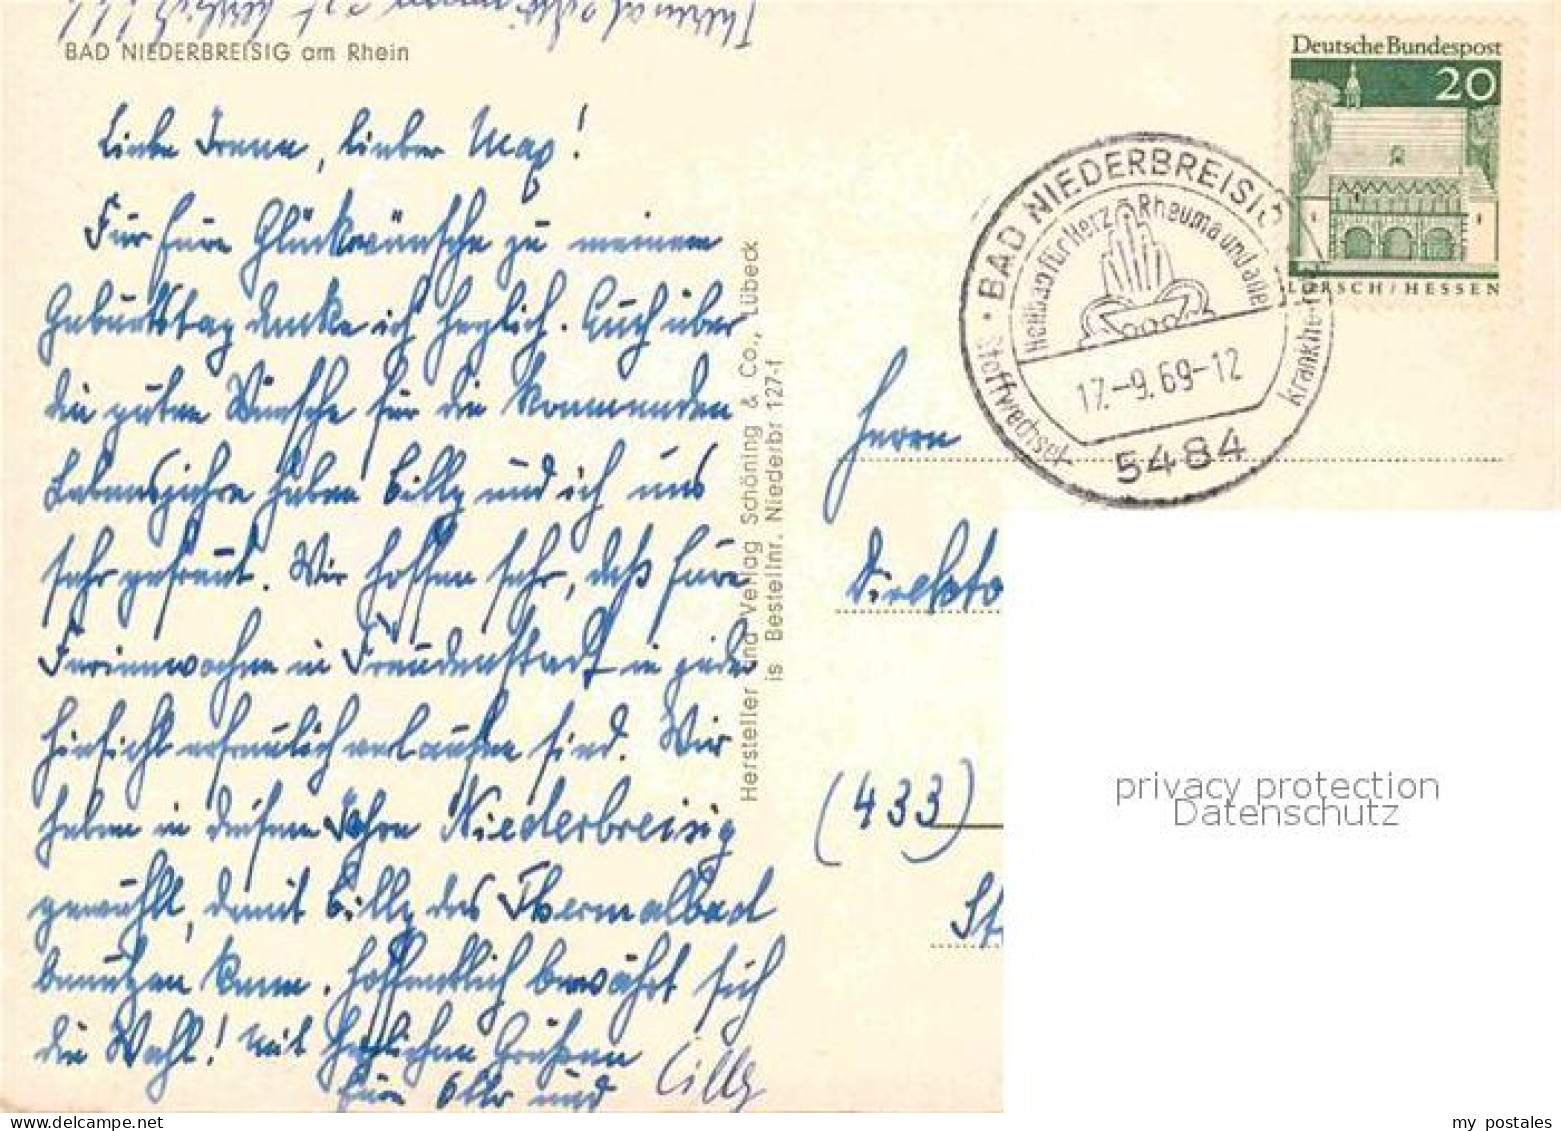 BAD NIEDERBREISIG am Rhein
Liebe Irene, lieber Max!
Für Eure Glückwünsche zu meinem
Geburtstag danke ich herzlich. Auch über
die guten Wünsche für die kommenden
Lebensjahre haben Cilly und ich uns
sehr gefreut. Wir hoffen sehr, daß Eure
Ferienwochen in Freudenstadt in jeder
Hinsicht erfreulich verlaufen sind. Wir
haben in diesem Jahre Niederbreisig
gewählt, damit Cilly das Thermalbad
benutzen kann. Hoffentlich bewährt sich
die Wahl! Mit herzlichen Grüßen
Eure und Cilly
Hersteller und Verlag Schöning & Co., Lübeck
is Bestellnr. Niederbr 127-f
Deutsche Bundespost
20
LORSCH/HESSEN
BAD NIEDERBREISIG
Heilbad für Herz Rheuma und alle
Stoffwechsel krankheiten
17.-9.69-12
5484
Herrn
Direkto
(433)
St
privacy protection
Datenschutz
my postales